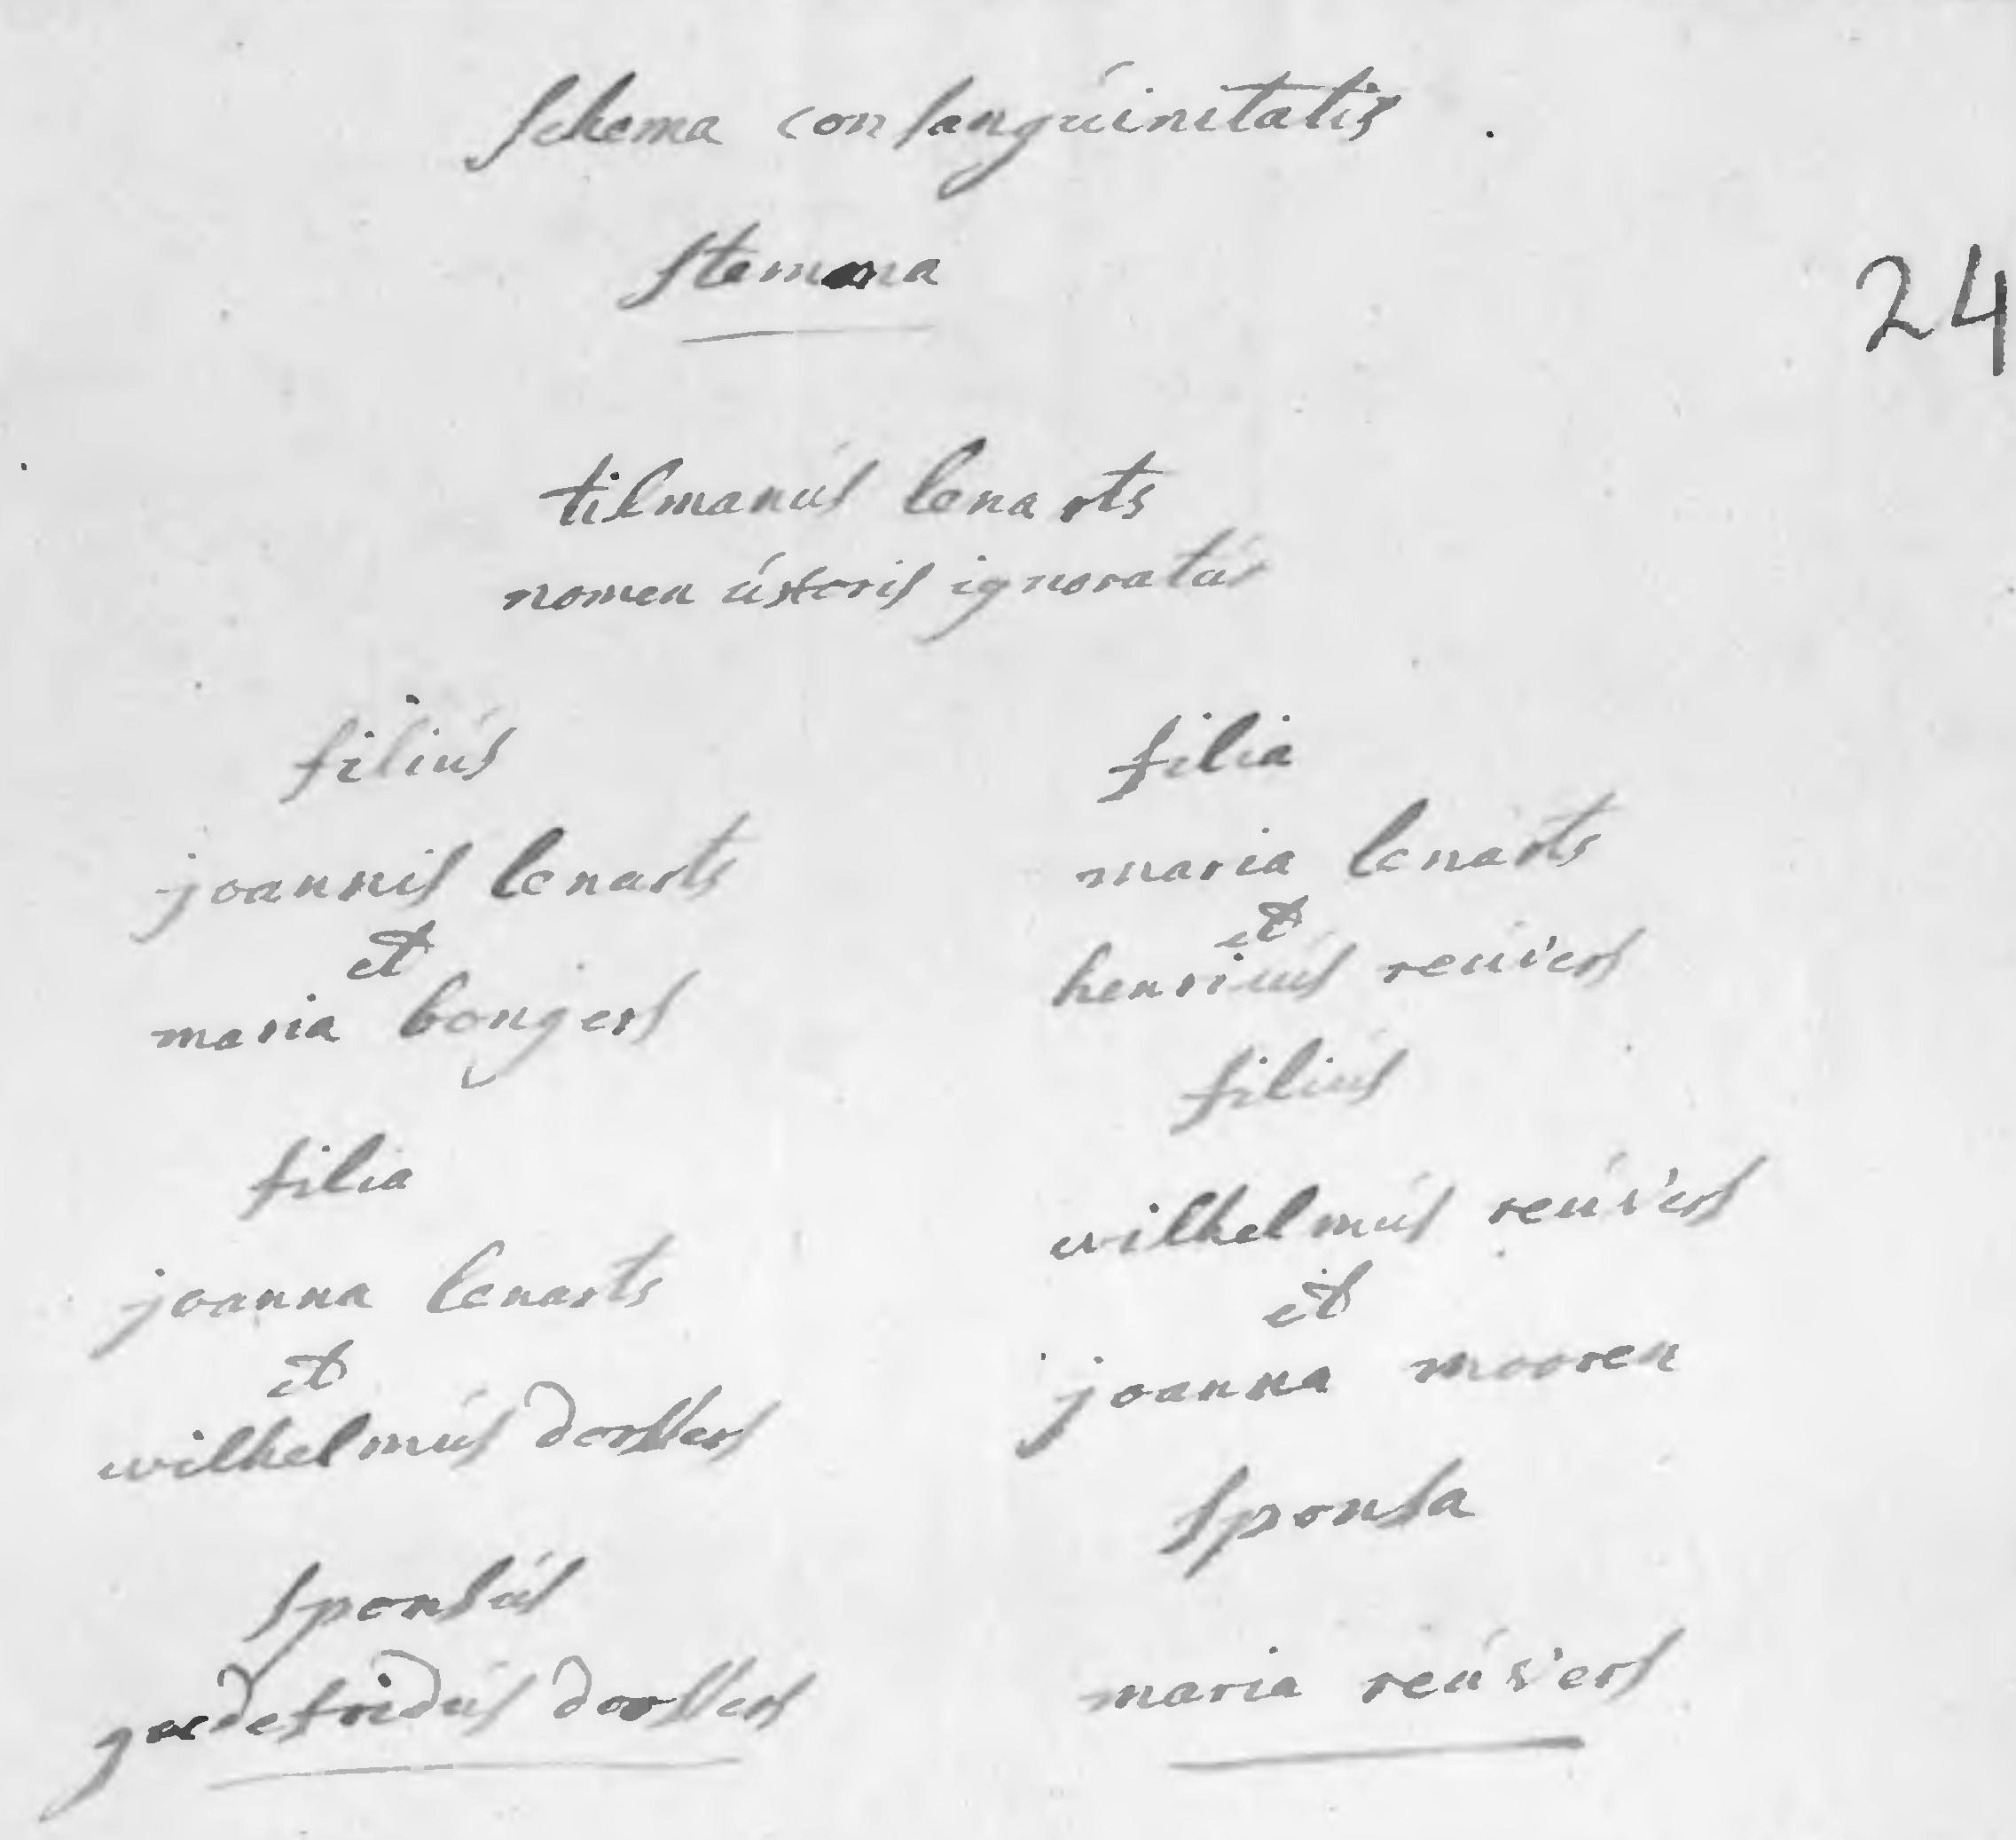 Schema consanguinitatis.
Stemma
24
tilmanus lenarts
nomen uxoris ignoratur
filius
joannis lenarts
et
maria bongers
filia
joanna lenarts
et
wilhelmus dorssers
sponsus
godefridus dorssers
filia
maria lenarts
et
henricus reuvers
filius
wilhelmus reuvers
et
joanna mooren
sponsa
maria reuvers